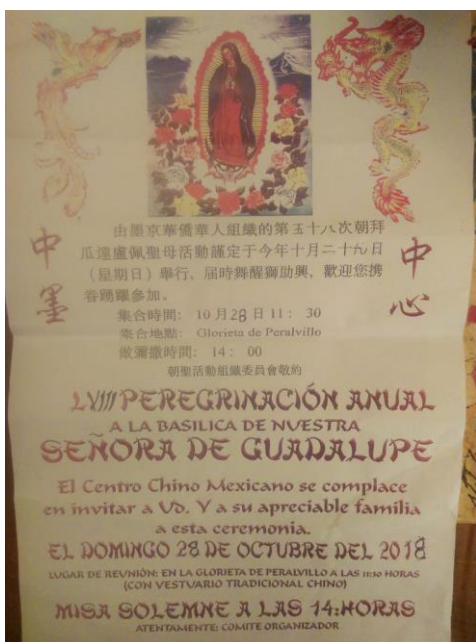 中墨
中心
由墨京華僑華人組織的第五十八次朝拜
瓜達盧佩聖母活動謹定于今年十月二十九日
(星期日)舉行,届時舞醒獅助興,歡迎您携
眷踴躍參加。
集合時間: 10月28日11: 30
集合地點: Glorieta de Peralvillo
做彌撒時間: 14: 00
朝聖活動組織委員會敬約
LVIII PEREGRINACIÓN ANUAL
A LA BASILICA DE NUESTRA
SEÑORA DE GUADALUPE
El Centro Chino Mexicano se complace
en invitar a Ud. Y a su apreciable familia
a esta ceremonia.
EL DOMINGO 28 DE OCTUBRE DEL 2018
LUGAR DE REUNIÓN: EN LA GLORIETA DE PERALVILLO A LAS 11:30 HORAS
(CON VESTUARIO TRADICIONAL CHINO)
MISA SOLEMNE A LAS 14:HORAS
ATENTAMENTE: COMITE ORGANIZADOR